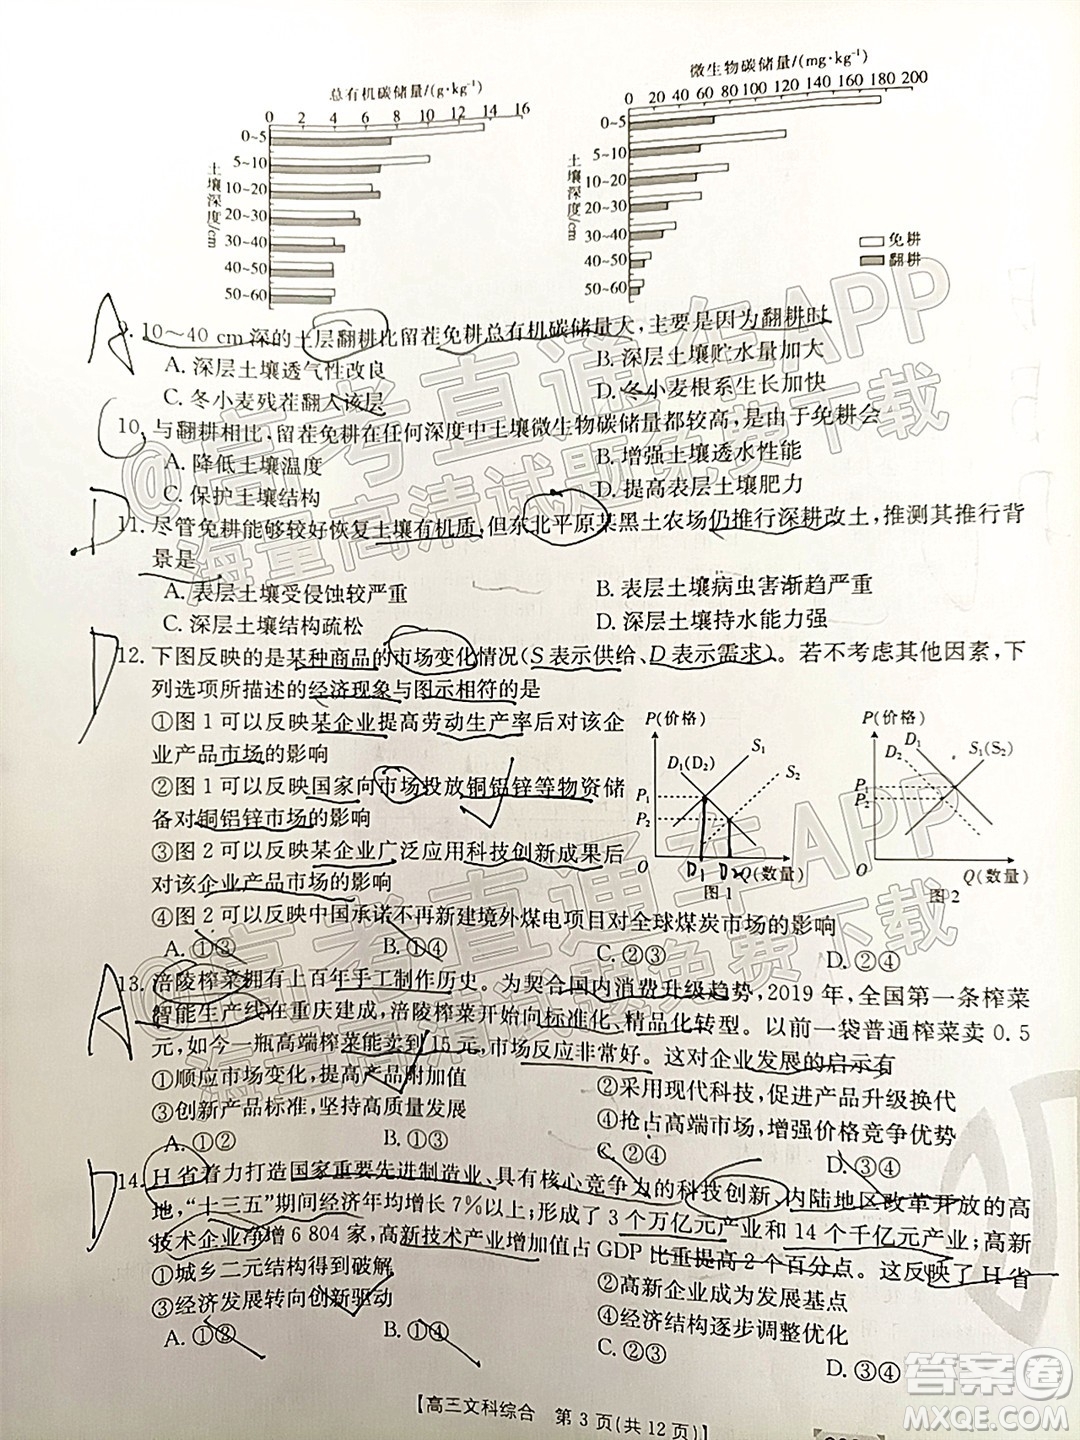 总有机碳储量/(g·kg⁻¹)
0 2 4 6 8 10 12 14 16
0~5
5~10
10~20
20~30
30~40
40~50
50~60
土壤深度/cm
微生物碳储量/(mg·kg⁻¹)
0 20 40 60 80 100 120 140 160 180 200
0~5
5~10
10~20
20~30
30~40
40~50
50~60
土壤深度/cm
免耕
翻耕
A
9. 10～40 cm深的土层翻耕比留茬免耕总有机碳储量大，主要是因为翻耕时
A. 深层土壤透气性改良
B. 深层土壤贮水量加大
C. 冬小麦残茬翻入该层
D. 冬小麦根系生长加快
C
10. 与翻耕相比、留茬免耕在任何深度中土壤微生物碳储量都较高，是由于免耕会
A. 降低土壤温度
B. 增强土壤透水性能
C. 保护土壤结构
D. 提高表层土壤肥力
D
11. 尽管免耕能够较好恢复土壤有机质，但东北平原某黑土农场仍推行深耕改土，推测其推行背
景是
A. 表层土壤受侵蚀较严重
B. 表层土壤病虫害渐趋严重
C. 深层土壤结构疏松
D. 深层土壤持水能力强
D
12. 下图反映的是某种商品的市场变化情况(S表示供给、D表示需求)。若不考虑其他因素，下
列选项所描述的经济现象与图示相符的是
①图1可以反映某企业提高劳动生产率后对该企
业产品市场的影响
②图1可以反映国家向市场投放铜铝锌等物资储
备对铜铝锌市场的影响
③图2可以反映某企业广泛应用科技创新成果后
对该企业产品市场的影响
④图2可以反映中国承诺不再新建境外煤电项目对全球煤炭市场的影响
P(价格)
D₁(D₂)
S₁
S₂
P₁
P₂
O
D₁ D₂
Q(数量)
图1
P(价格)
D₁
D₂
S₁(S₂)
P₁
P₂
O
Q(数量)
图2
A. ①③
B. ①④
C. ②③
D. ②④
A
13. 涪陵榨菜拥有上百年手工制作历史。为契合国内消费升级趋势，2019年，全国第一条榨菜
智能生产线在重庆建成，涪陵榨菜开始向标准化、精品化转型。以前一袋普通榨菜卖0.5
元，如今一瓶高端榨菜能卖到15元，市场反应非常好。这对企业发展的启示有
①顺应市场变化，提高产品附加值
②采用现代科技，促进产品升级换代
③创新产品标准，坚持高质量发展
④抢占高端市场，增强价格竞争优势
A. ①②
B. ①③
C. ②④
D. ③④
D
14. H省着力打造国家重要先进制造业、具有核心竞争力的科技创新、内陆地区改革开放的高
地，“十三五”期间经济年均增长7%以上；形成了3个万亿元产业和14个千亿元产业；高新
技术企业净增6 804家，高新技术产业增加值占GDP比重提高2个百分点。这反映了H省
①城乡二元结构得到破解
②高新企业成为发展基点
③经济发展转向创新驱动
④经济结构逐步调整优化
A. ①②
B. ①④
C. ②③
D. ③④
【高三文科综合 第3页(共12页)】
@高考直通车APP
海量高清试题免费下载
@高考直通车APP
海量高清试题免费下载
答案圈
MXQE.COM